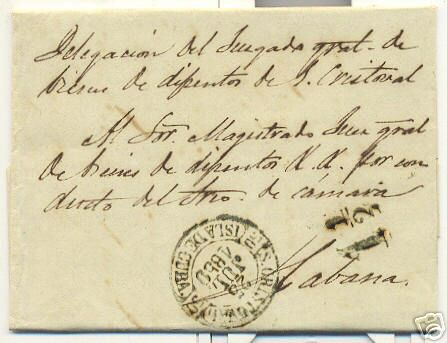 Delegación del Juzgado gral. de
bienes de difuntos de S. Cristoval
Al Sor. Magistrado Juez gral
de bienes de difuntos &. &. por con
ducto del Sno. de cámara
1 1/2
Habana.
S. CRISTOVAL
ISLA DE CUBA